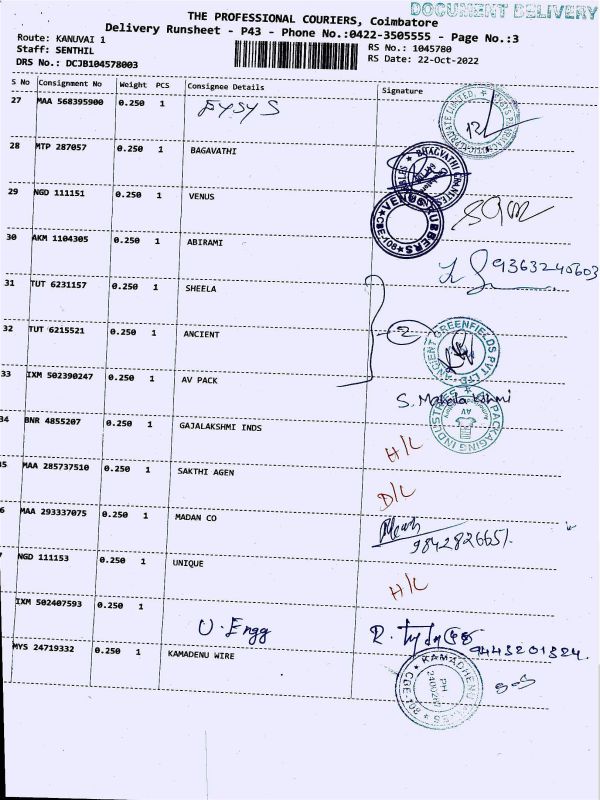 DOCUMENT DELIVERY
THE PROFESSIONAL COURIERS, Coimbatore
Delivery Runsheet - P43 - Phone No.:0422-3505555 - Page No.:3
Route: KANUVAI 1
Staff: SENTHIL
DRS No.: DCJB104578003
RS No.: 1045780
RS Date: 22-Oct-2022
S No Consignment No Weight PCS Consignee Details Signature
27 MAA 568395900 0.250 1
28 MTP 287057 0.250 1 BAGAVATHI
29 NGD 111151 0.250 1 VENUS
VENUS RUBBERS
CBE-108
30 AKM 1104305 0.250 1 ABIRAMI
9363240603
31 TUT 6231157 0.250 1 SHEELA
32 TUT 6215521 0.250 1 ANCIENT
ANCIENT GREENFIELDS PVT LTD
33 IXM 502390247 0.250 1 AV PACK
PACKAGING INDUSTRIES
AV
34 BNR 4855207 0.250 1 GAJALAKSHMI INDS H/L
35 MAA 285737510 0.250 1 SAKTHI AGEN D/L
6 MAA 293337075 0.250 1 MADAN CO
9842826651
NGD 111153 0.250 1 UNIQUE H/L
IXM 502407593 0.250 1 U. Engg
9443201324
MYS 24719332 0.250 1 KAMADENU WIRE